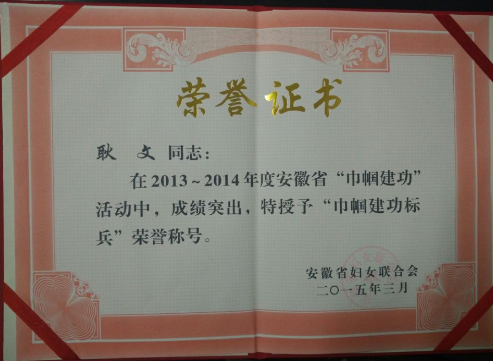 荣誉证书
耿 文 同志：
在2013~2014年度安徽省“巾帼建功”
活动中，成绩突出，特授予“巾帼建功标
兵”荣誉称号。
安徽省妇女联合会
二〇一五年三月